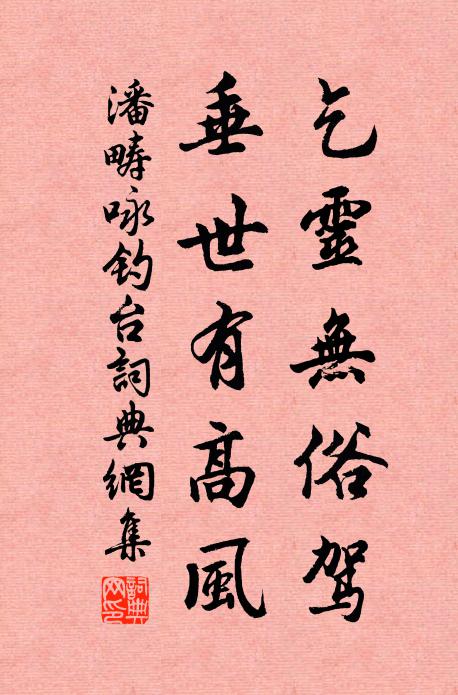 乞靈無俗駕
垂世有高風
潘疇咏釣台詞典網集
詞典網印